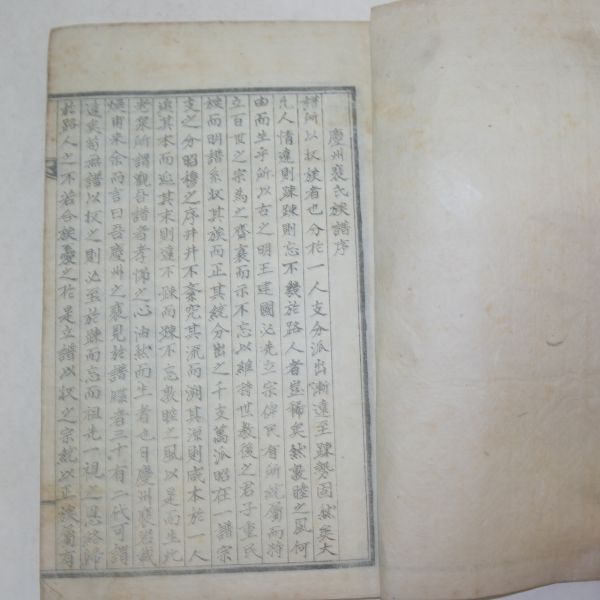 慶州裵氏族譜序
譜所以收族者也分於一人支分派出漸遠至踈勢固然矣大
凡人情遠則踈踈則忘不幾於路人者豈稀矣然敦睦之風何
由而生乎所以古之明王建國必先立宗俾民有所統屬而特
立百世之宗為之齊衰而示不忘以維諧世敎後之君子重氏
族而明譜系收其族而正其統分出之千支萬派昭在一譜宗
支之分昭穆之序井井不紊究其流而溯其源則咸本於一人
追其本而追其末則遠不踈而踈不忘敦睦之風以是而生此
老泉所謂觀吾譜者孝悌之心油然而生者也日慶州裵君
煥甫來余而言曰吾慶州之裵見於譜牒者三十有二代可謂
遠矣苟無譜以收之則必至於踈而忘而祖先一視之恩終歸
於路人之不若合族憂之於是立譜以收之宗統以正流屬有